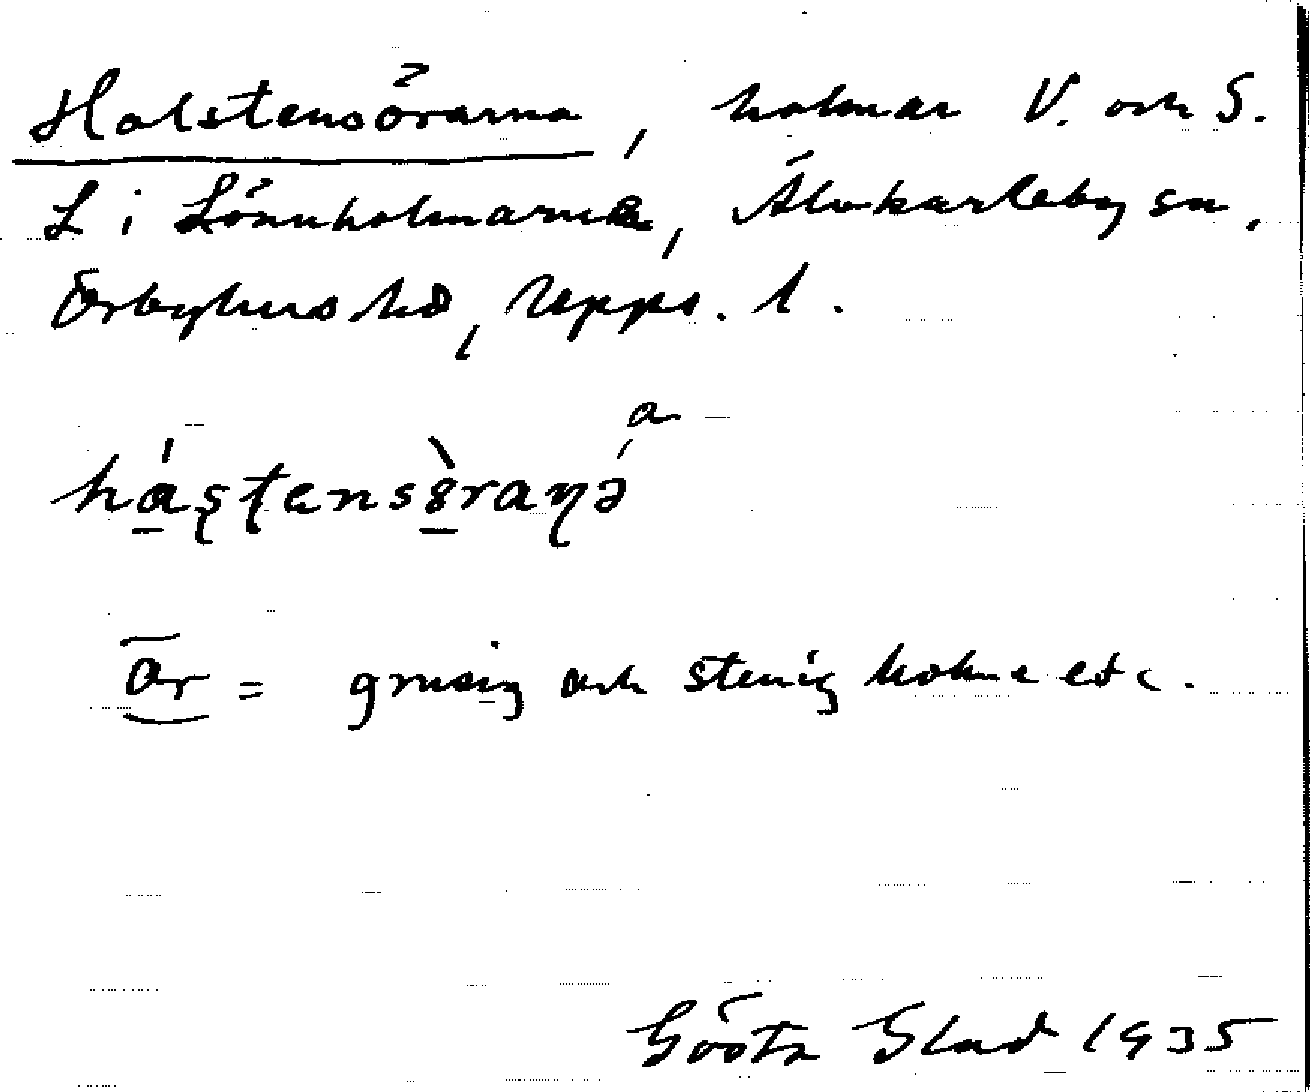 Halstensörarna, holmar V. och S.
L i Lönnholmarna, Älvkarleby sn,
Örbyhus hd, Upps. l.
a
háștensòraṇə
ör = grusig och stenig holme etc.
Gösta Glad 1935